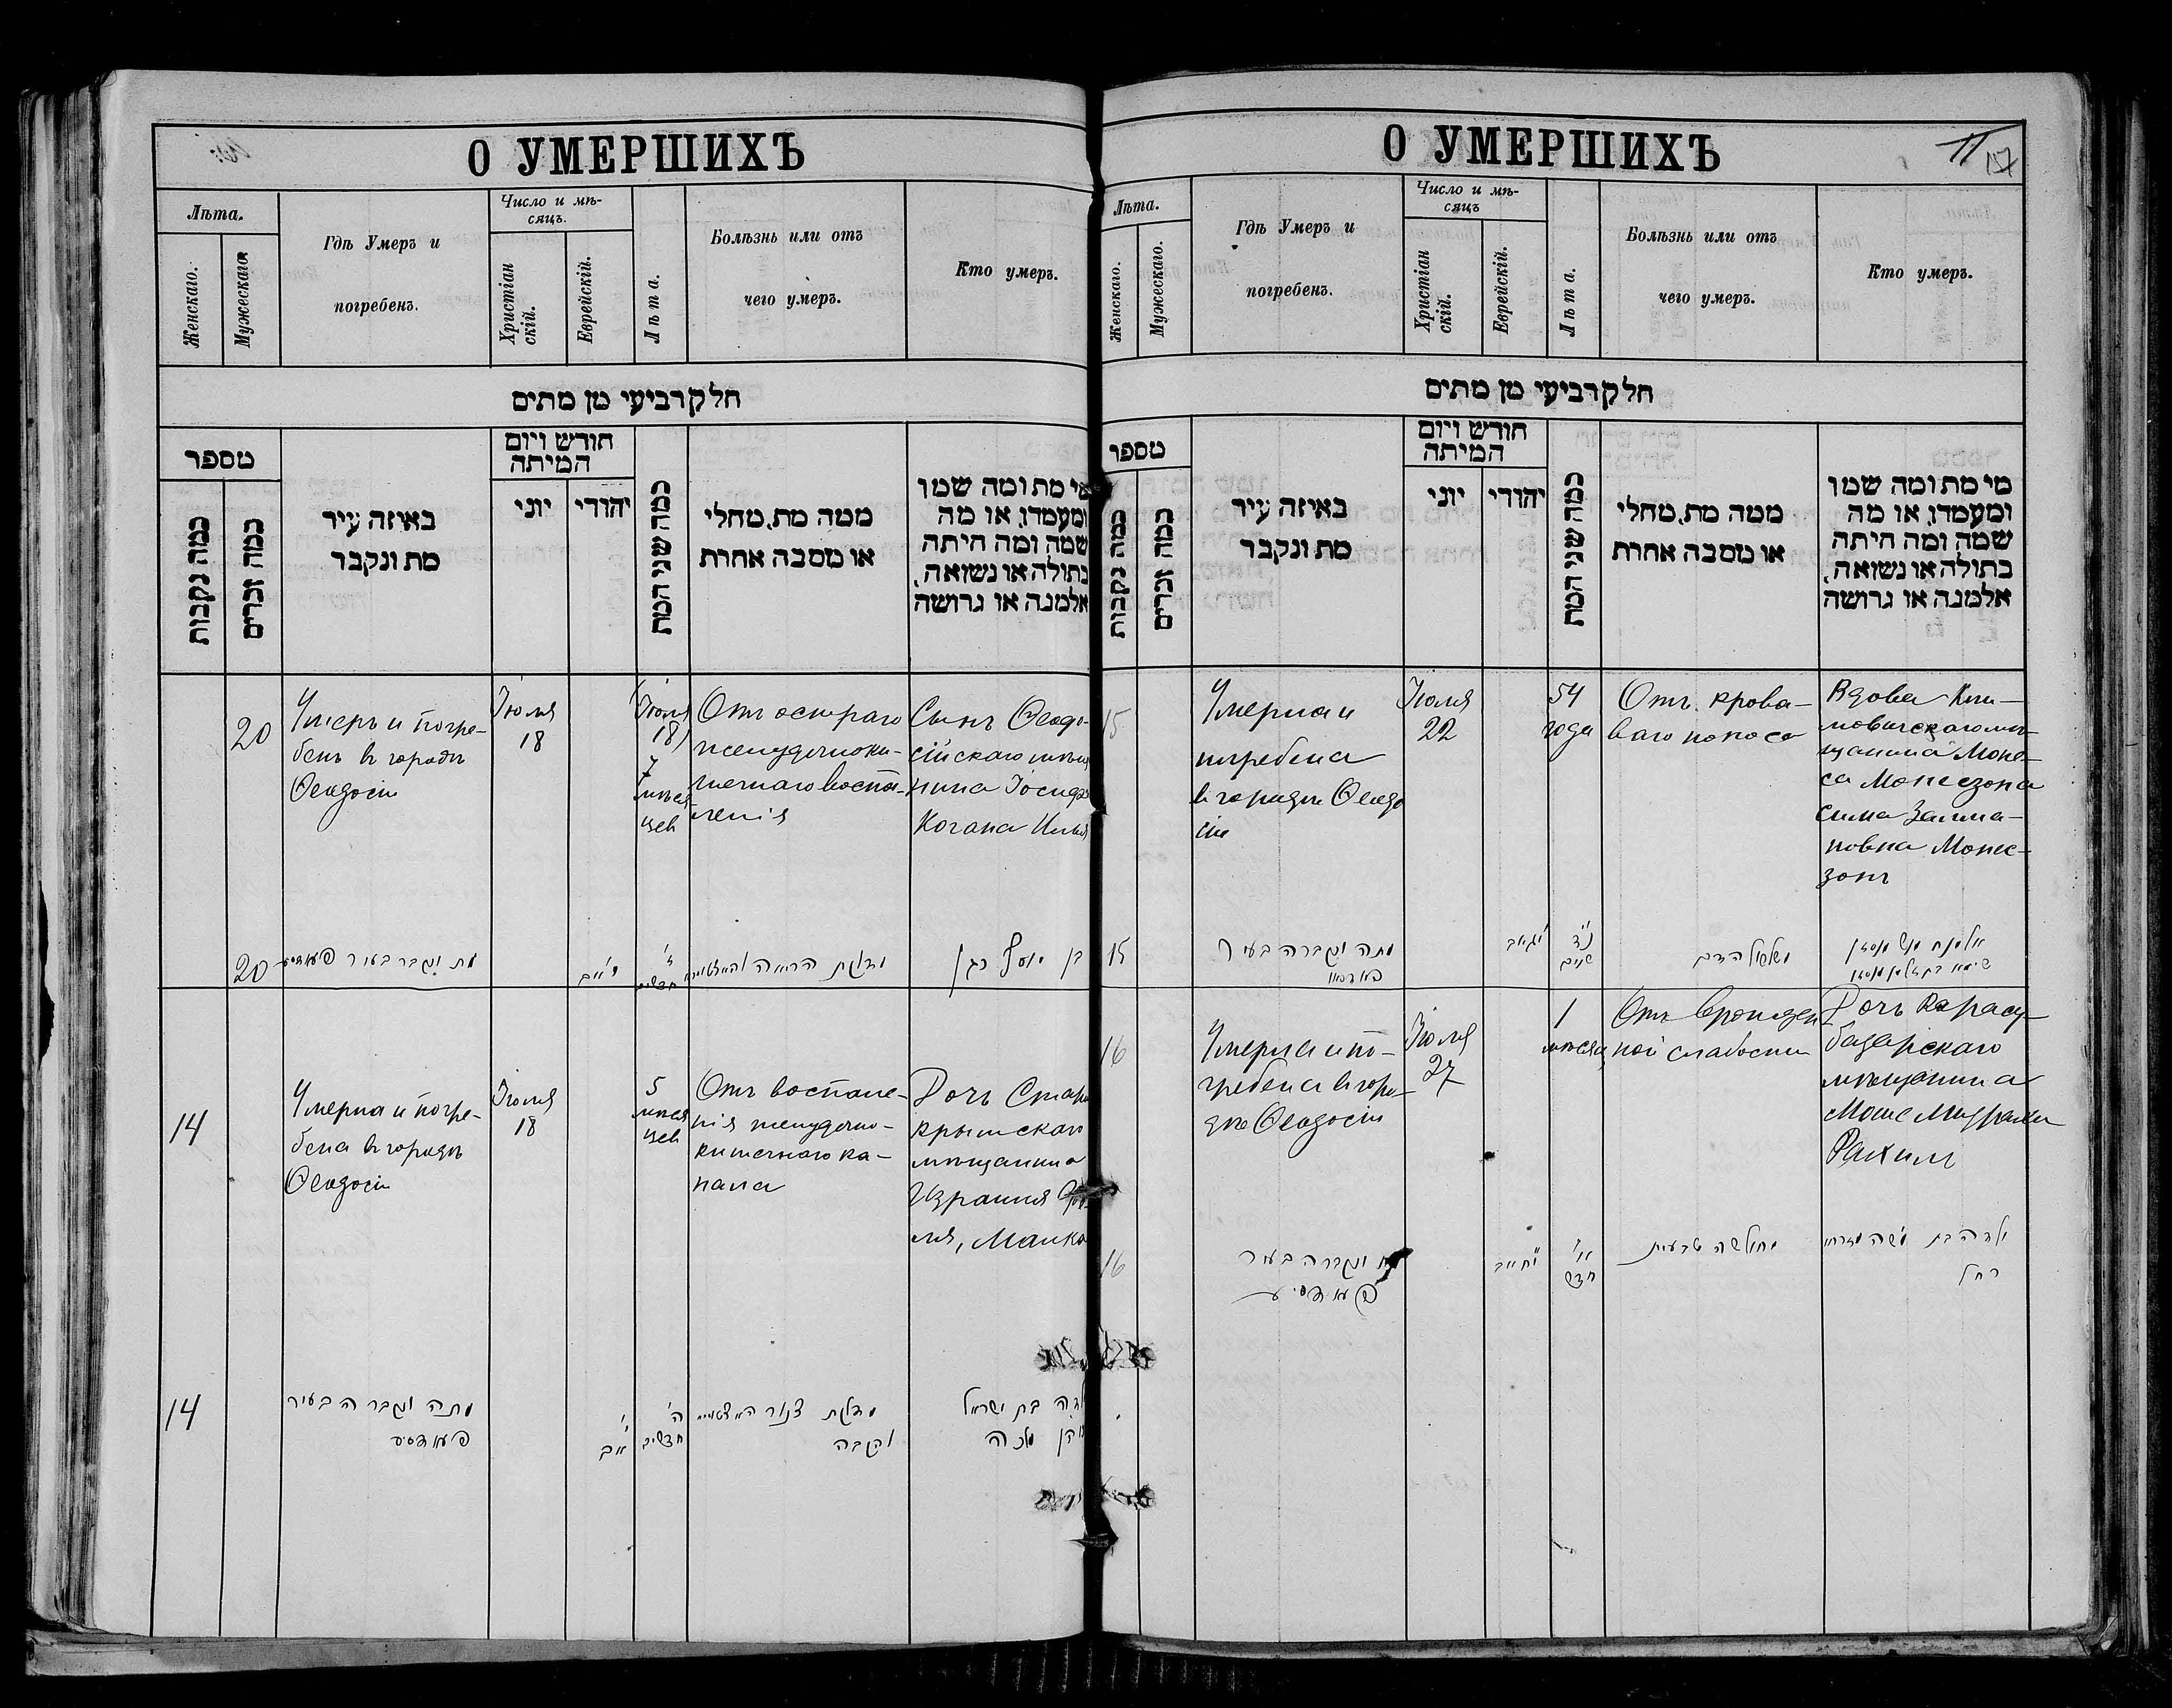 О УМЕРШИХЪ
Лѣта.
Женскаго.
Мужескаго.
Гдѣ Умеръ и
погребенъ.
Число и мѣ-
сяцъ.
Христіан
скій.
Еврейскій.
Лѣта.
Болѣзнь или отъ
чего умеръ.
Кто умеръ.
חלק רביעי מן מתים
מספר
כמה נקבות
כמה זכרים
באיזה עיר
מת ונקבר
חודש ויום
המיתה
יוני
יהודי
כמה שני המת
ממה מת, מחלי
או מסבה אחרת
מי מת ומה שמו
ומעמדו, או מה
שמה ומה היתה
בתולה או נשואה,
אלמנה או גרושה
20
Умеръ и погре-
бенъ въ городѣ
Ѳеодосіи
Іюля
18
Іюля
18)
7
мѣся-
цев
Отъ остраго
желудочноки-
шечнаго воспа-
ленія
Сынъ Ѳеодо-
сійскаго мѣща
нина Іосифа
Когана Илья
20
מת ונקבר בעיר
ז'
חדשים
בן יוסף כגן
14
Умерла и погре-
бена въ городѣ
Ѳеодосіи
Іюля
18
5
мѣся
цев
Отъ воспале-
нія желудочно-
кишечнаго ка-
нала
Дочь Старо
крымскаго
мѣщанина
Израиля
Малка
14
מתה ונקברה בעיר
ה'
חדשים
ילדה בת ישראל
מלכה
О УМЕРШИХЪ
11
Лѣта.
Женскаго.
Мужескаго.
Гдѣ Умеръ и
погребенъ.
Число и мѣ-
сяцъ
Христіан
скій.
Еврейскій.
Лѣта.
Болѣзнь или отъ
чего умеръ.
Кто умеръ.
חלק רביעי מן מתים
מספר
כמה נקבות
כמה זכרים
באיזה עיר
מת ונקבר
חודש ויום
המיתה
יוני
יהודי
כמה שני המת
ממה מת, מחלי
או מסבה אחרת
מי מת ומה שמו
ומעמדו, או מה
שמה ומה היתה
בתולה או נשואה,
אלמנה או גרושה
15
Умерла и
погребена
въ городѣ Ѳеодо
сіи
Іюля
22
54
года
Отъ крова-
ваго поноса
Вдова Кли-
мовичскаго мѣ-
щанина Моне-
са Монесзона
Сима Залма-
новна Монес-
зонъ
15
מתה ונקברה בעיר
נ"ד
שנים
משלשול הדם
16
Умерла и по-
гребена въ горо-
дѣ Ѳеодосіи
Іюля
27
1
мѣсяц
Отъ врожден
ной слабости
Дочь Карасу-
базарскаго
мѣщанина
Моше Мизрахи
Рахиль
16
ונקברה בעיר
א'
חדש
מחולשה טבעית
ילדה בת משה מזרחי
רחל